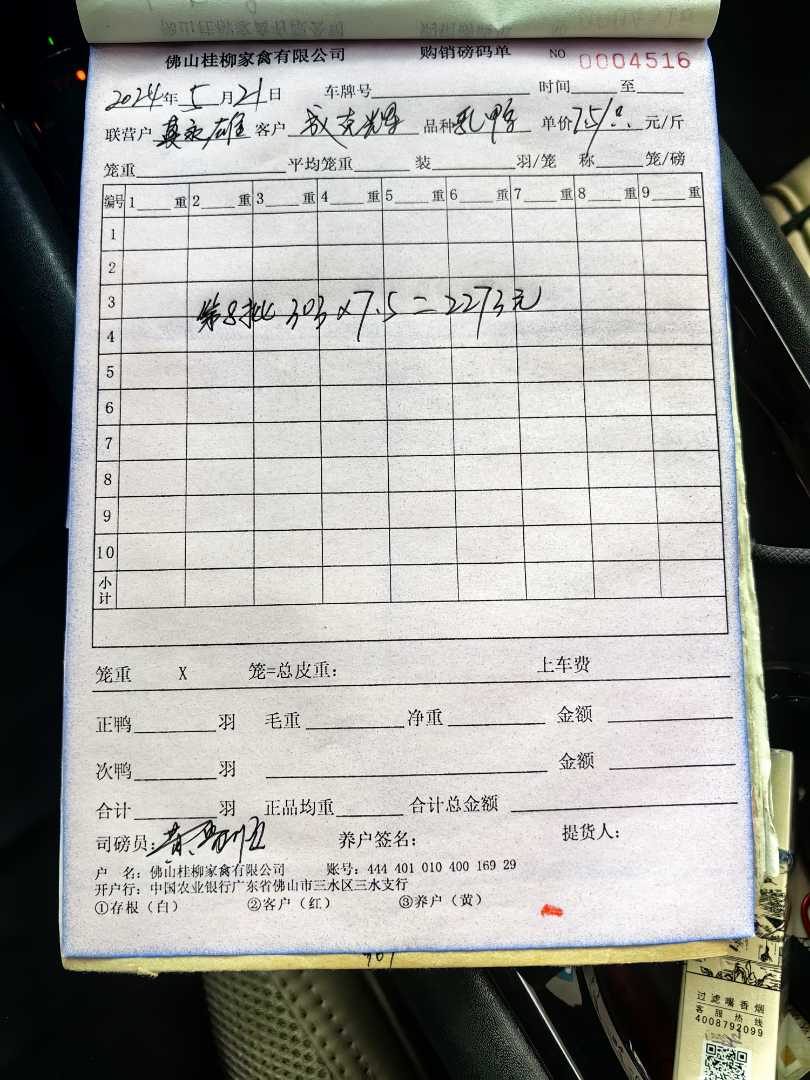 佛山桂柳家禽有限公司 购销磅码单 NO 0004516
2024年5月21日 车牌号 时间 至
联营户 客户 品种 乳鸭 单价 元/斤
笼重 平均笼重 装 羽/笼 称 笼/磅
编号 1 重 2 重 3 重 4 重 5 重 6 重 7 重 8 重 9 重
1
2
3
第8批 303×7.5=2273元
4
5
6
7
8
9
10
小计
笼重 X 笼=总皮重: 上车费
正鸭 羽 毛重 净重 金额
次鸭 羽 金额
合计 羽 正品均重 合计总金额
司磅员: 养户签名: 提货人:
户 名: 佛山桂柳家禽有限公司 账号: 444 401 010 400 169 29
开户行: 中国农业银行广东省佛山市三水区三水支行
①存根(白) ②客户(红) ③养户(黄)
过滤嘴香烟
客服热线
4008792099